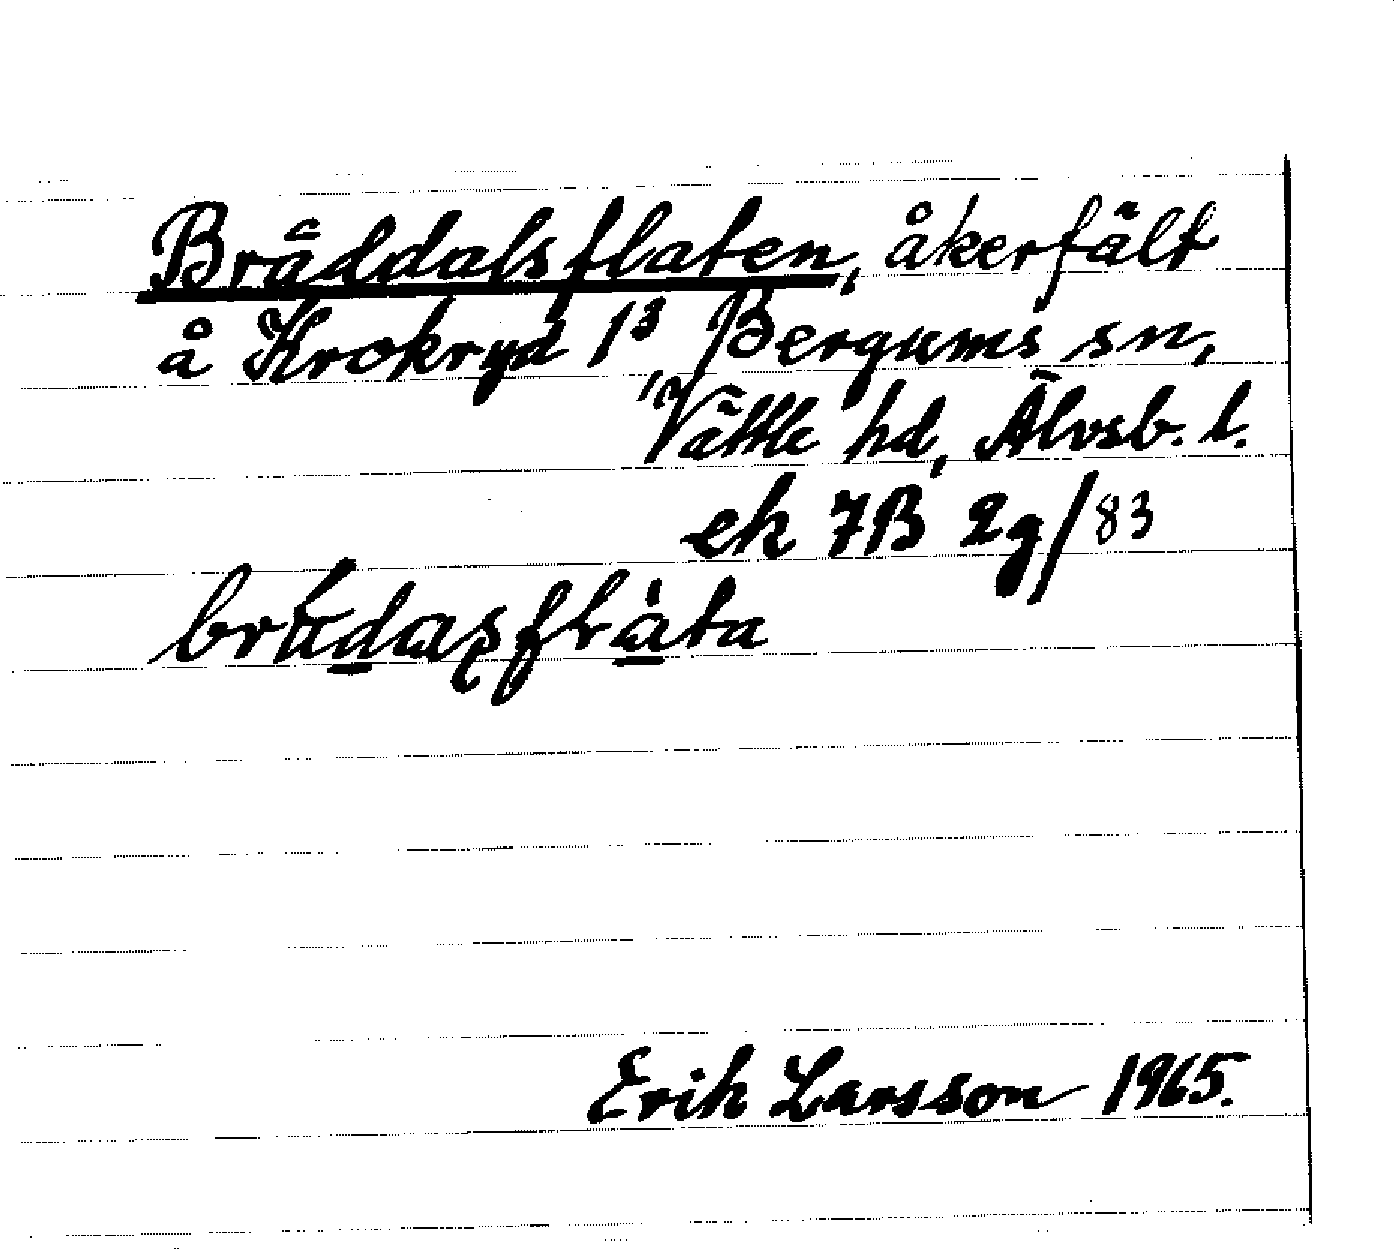 Bräddalsflaten, åkerfält
å Krokryd 1³, Bergums sn,
Vättle hd, Älvsb. l.
ek 7B 2g/83
Erik Larsson 1965.